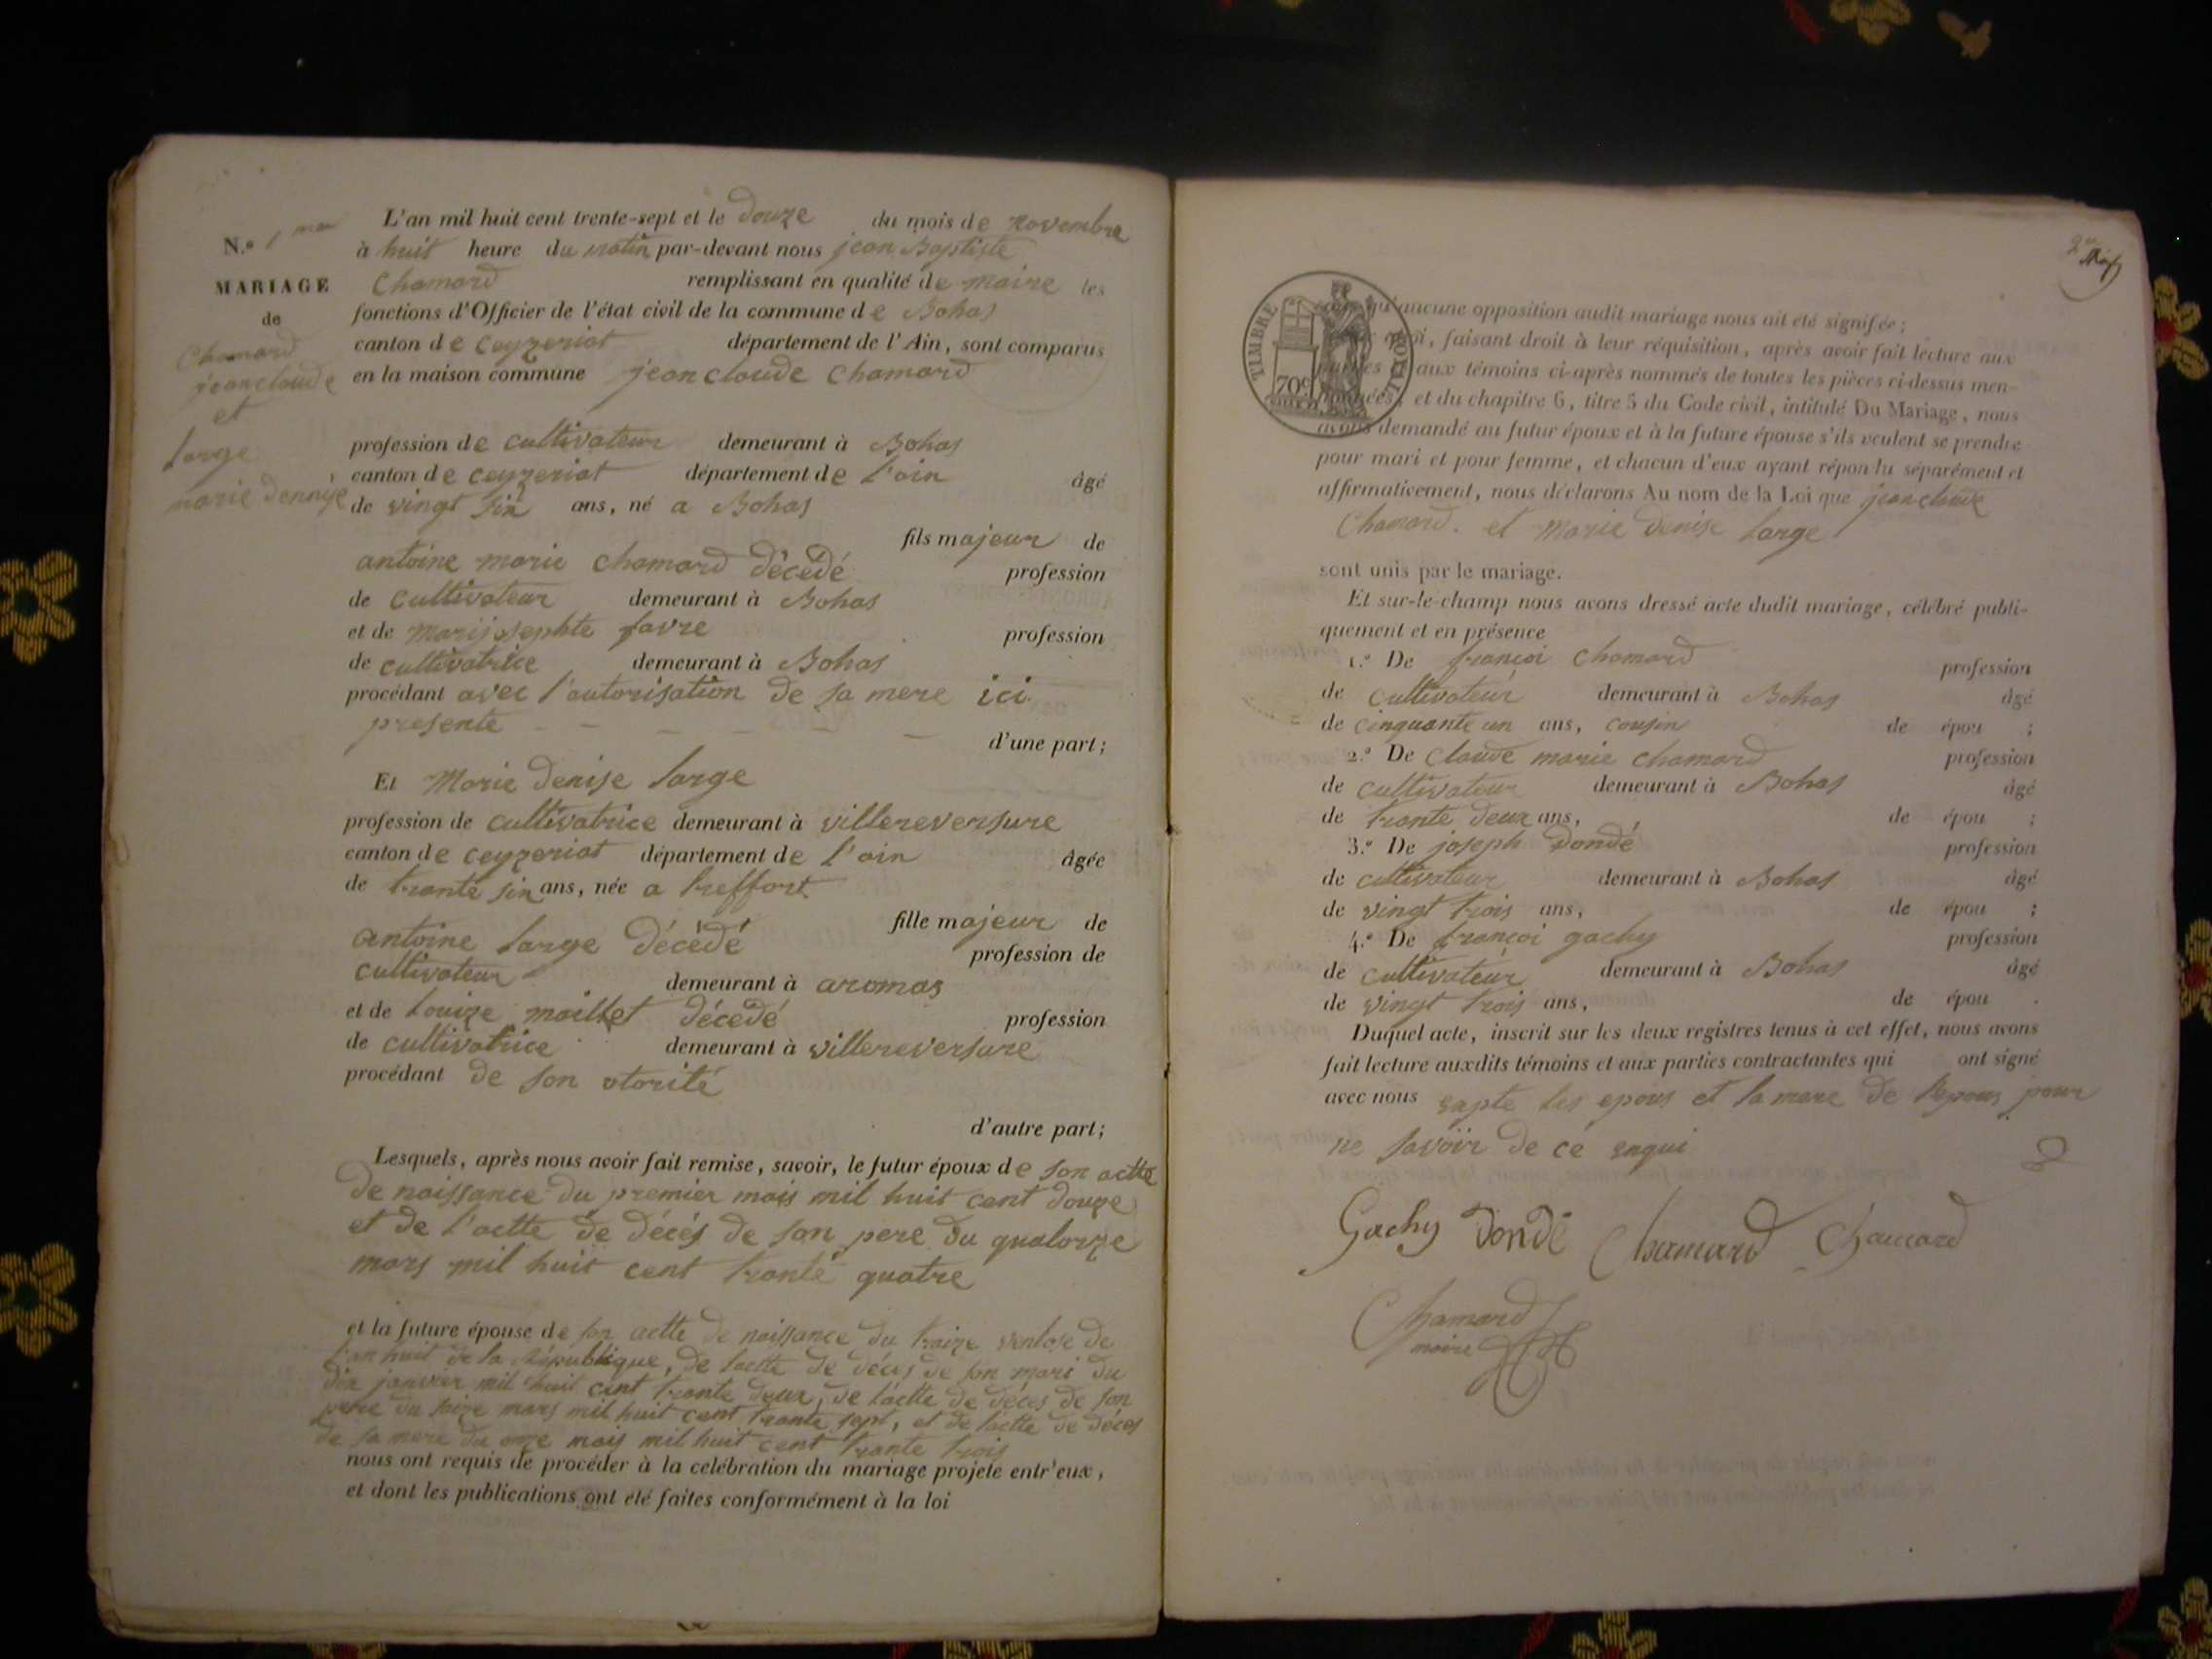 N.º 1
MARIAGE
de
Chamard
jean claude
et
large
marie dennise
L'an mil huit cent trente-sept et le douze du mois de novembre
à huit heure du matin par-devant nous jean Baptiste
Chamard remplissant en qualité de maire les
fonctions d'Officier de l'état civil de la commune de Bohas
canton de Ceyzeriat département de l'Ain, sont comparus
en la maison commune jean claude Chamard
profession de cultivateur demeurant à Bohas
canton de ceyzeriat département de l'ain âgé
de vingt sin ans, né a Bohas
fils majeur de
antoine marie chamard décédé profession
de cultivateur demeurant à Bohas
et de marijosephte favre profession
de cultivatrice demeurant à Bohas
procédant avec l'autorisation de sa mere ici
presente
d'une part;
Et Marie denise large
profession de cultivatrice demeurant à villereversure
canton de ceyzeriat département de l'ain âgée
de trante sin ans, née a treffort
fille majeur de
antoine large décédé profession de
cultivateur demeurant à aromas
et de Louize maillet décedé profession
de cultivatrice demeurant à villereversure
procédant de son otorité
d'autre part;
Lesquels, après nous avoir fait remise, savoir, le futur époux de son actte
de naissance du premier mais mil huit cent douze
et de l'actte de décés de son pere du quatorze
mars mil huit cent trante quatre
et la future épouse de son actte de naissance du traize ventose de
l'an huit de la République, de lactte de déces de son mari du
dix janvier mil huit cent trante deux, de lactte de déces de son
pere du saize mars mil huit cent trante sept, et de lactte de déces
de sa mere du onze mais mil huit cent trante trois
nous ont requis de procéder à la célébration du mariage projeté entr'eux,
et dont les publications ont été faites conformément à la loi
TIMBRE ROYAL
70c
qu'aucune opposition audit mariage nous ait été signifée;
faisant droit à leur réquisition, après avoir fait lecture aux
aux témoins ci-après nommés de toutes les pièces ci-dessus men-
et du chapitre 6, titre 5 du Code civil, intitulé Du Mariage, nous
avons demandé au futur époux et à la future épouse s'ils veulent se prendre
pour mari et pour femme, et chacun d'eux ayant répondu séparément et
affirmativement, nous déclarons Au nom de la Loi que jean claude
Chamard. et Marie denise large
sont unis par le mariage.
Et sur-le-champ nous avons dressé acte dudit mariage, célébré publi-
quement et en présence
1.º De françoi chamard profession
de cultivateur demeurant à Bohas âgé
de cinquante un ans, cousin de épou ;
2.º De Claude marie chamard profession
de cultivateur demeurant à Bohas âgé
de trante deux ans, de épou ;
3.º De joseph Dondé profession
de cultivateur demeurant à Bohas âgé
de vingt trois ans, de épou ;
4.º De françoi gachy profession
de cultivateur demeurant à Bohas âgé
de vingt trois ans, de épou .
Duquel acte, inscrit sur les deux registres tenus à cet effet, nous avons
fait lecture auxdits témoins et aux parties contractantes qui ont signé
avec nous sapte les epous et la mere de lepous pour
ne savoir de cé enqui
Gachy Dondé Chamard Chamard
Chamard
maire